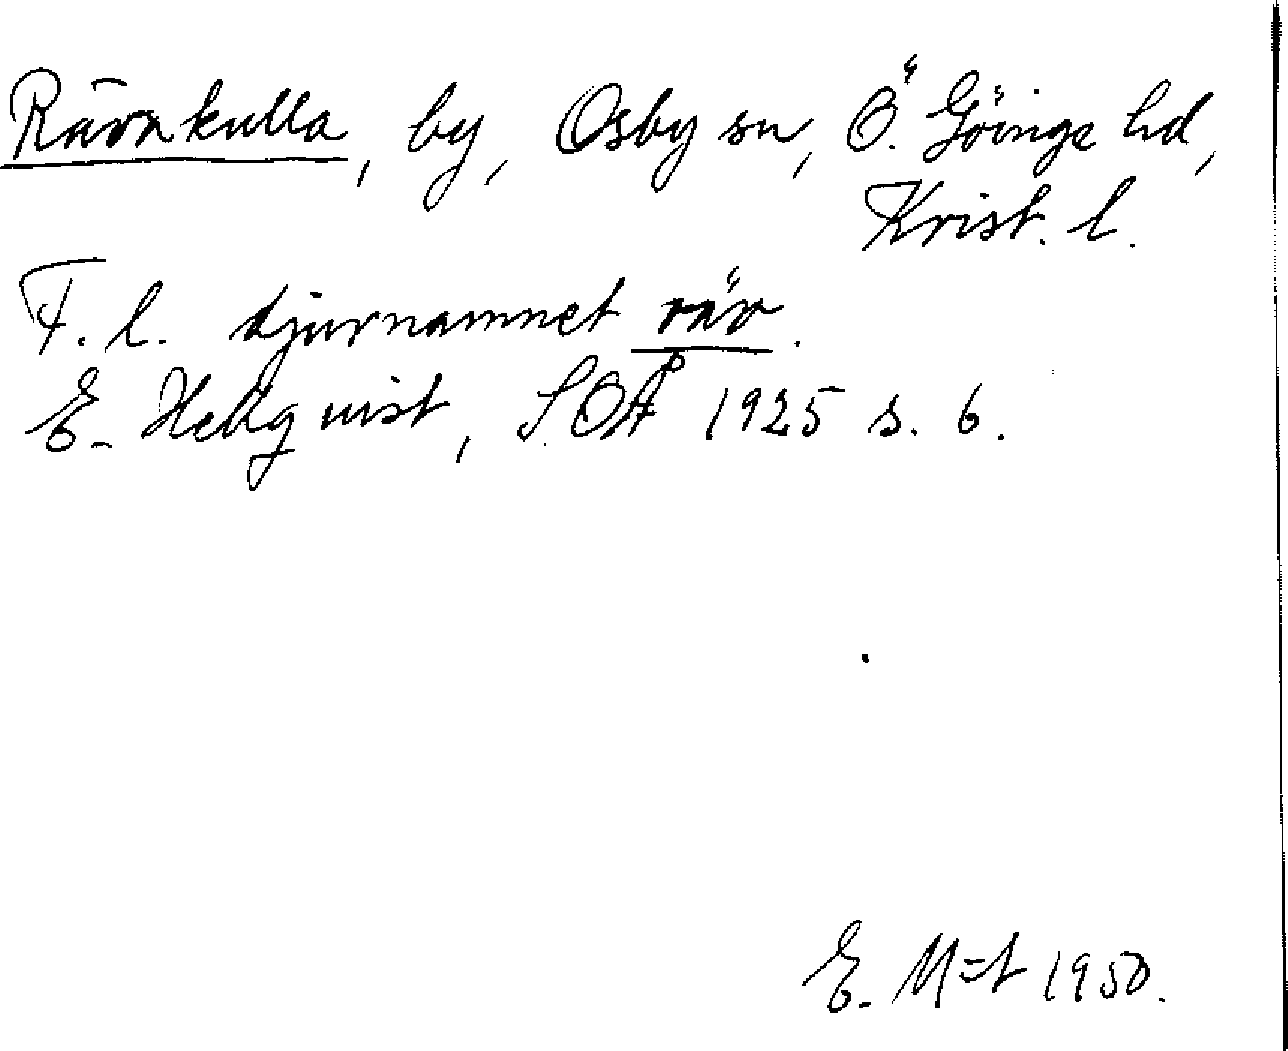 Rävakulla, by, Osby sn, Ö. Göinge hd,
Krist. l.
F. l. djurnamnet räv.
E. Hellquist, S.OÅ 1925 s. 6.
E. M=t 1950.